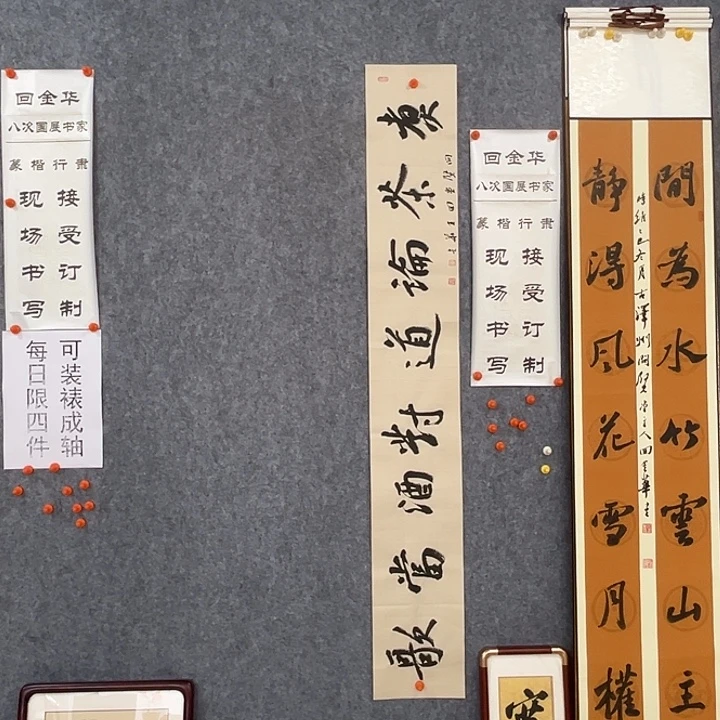 回金华
八次国展书家
篆楷行隶
接受订制
现场书写
可装裱成轴
每日限四件
煮茶論道對酒當歌
回金华
八次国展书家
篆楷行隶
接受订制
现场书写
間為水竹雲山主
靜得风花雪月權